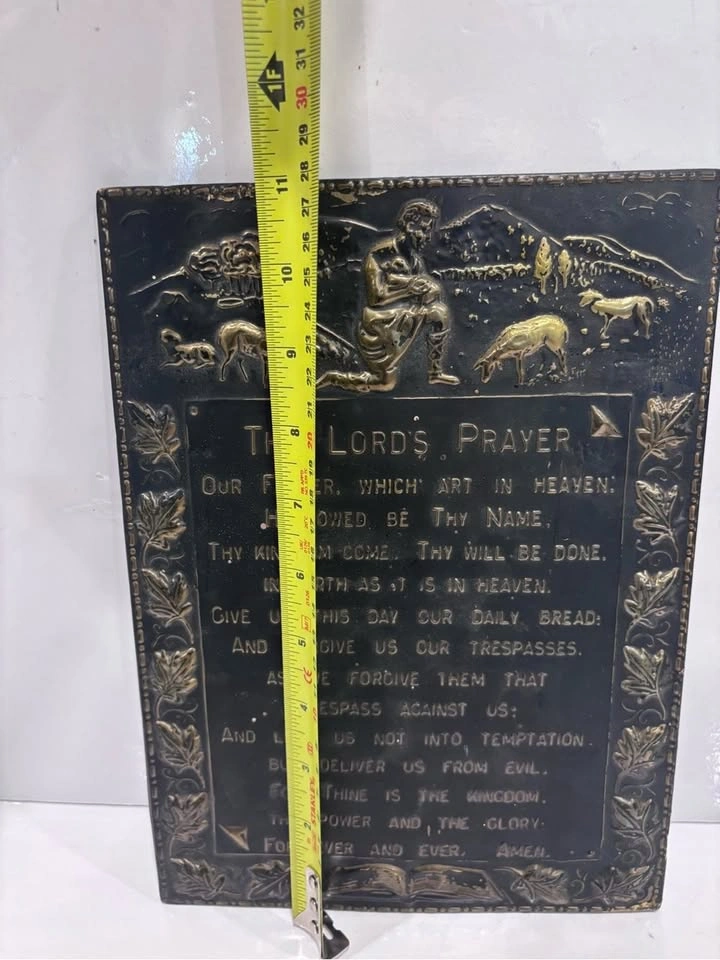 THE LORD'S PRAYER
OUR F ER, WHICH ART IN HEAVEN:
H OWED BE THY NAME.
THY KIN M COME. THY WILL BE DONE.
IN RTH AS IT IS IN HEAVEN.
GIVE U HIS DAY OUR DAILY BREAD:
AND GIVE US OUR TRESPASSES.
AS E FORGIVE THEM THAT
ESPASS AGAINST US:
AND L US NOT INTO TEMPTATION.
BU DELIVER US FROM EVIL.
FO THINE IS THE KINGDOM.
TH POWER AND THE GLORY
FO EVER AND EVER. AMEN.
1F
32
31
30
29
28
11
27
26
10
25
24
23
9
22
21
8
20
19
18
7
17
6
5
4
3
STANLEY
2